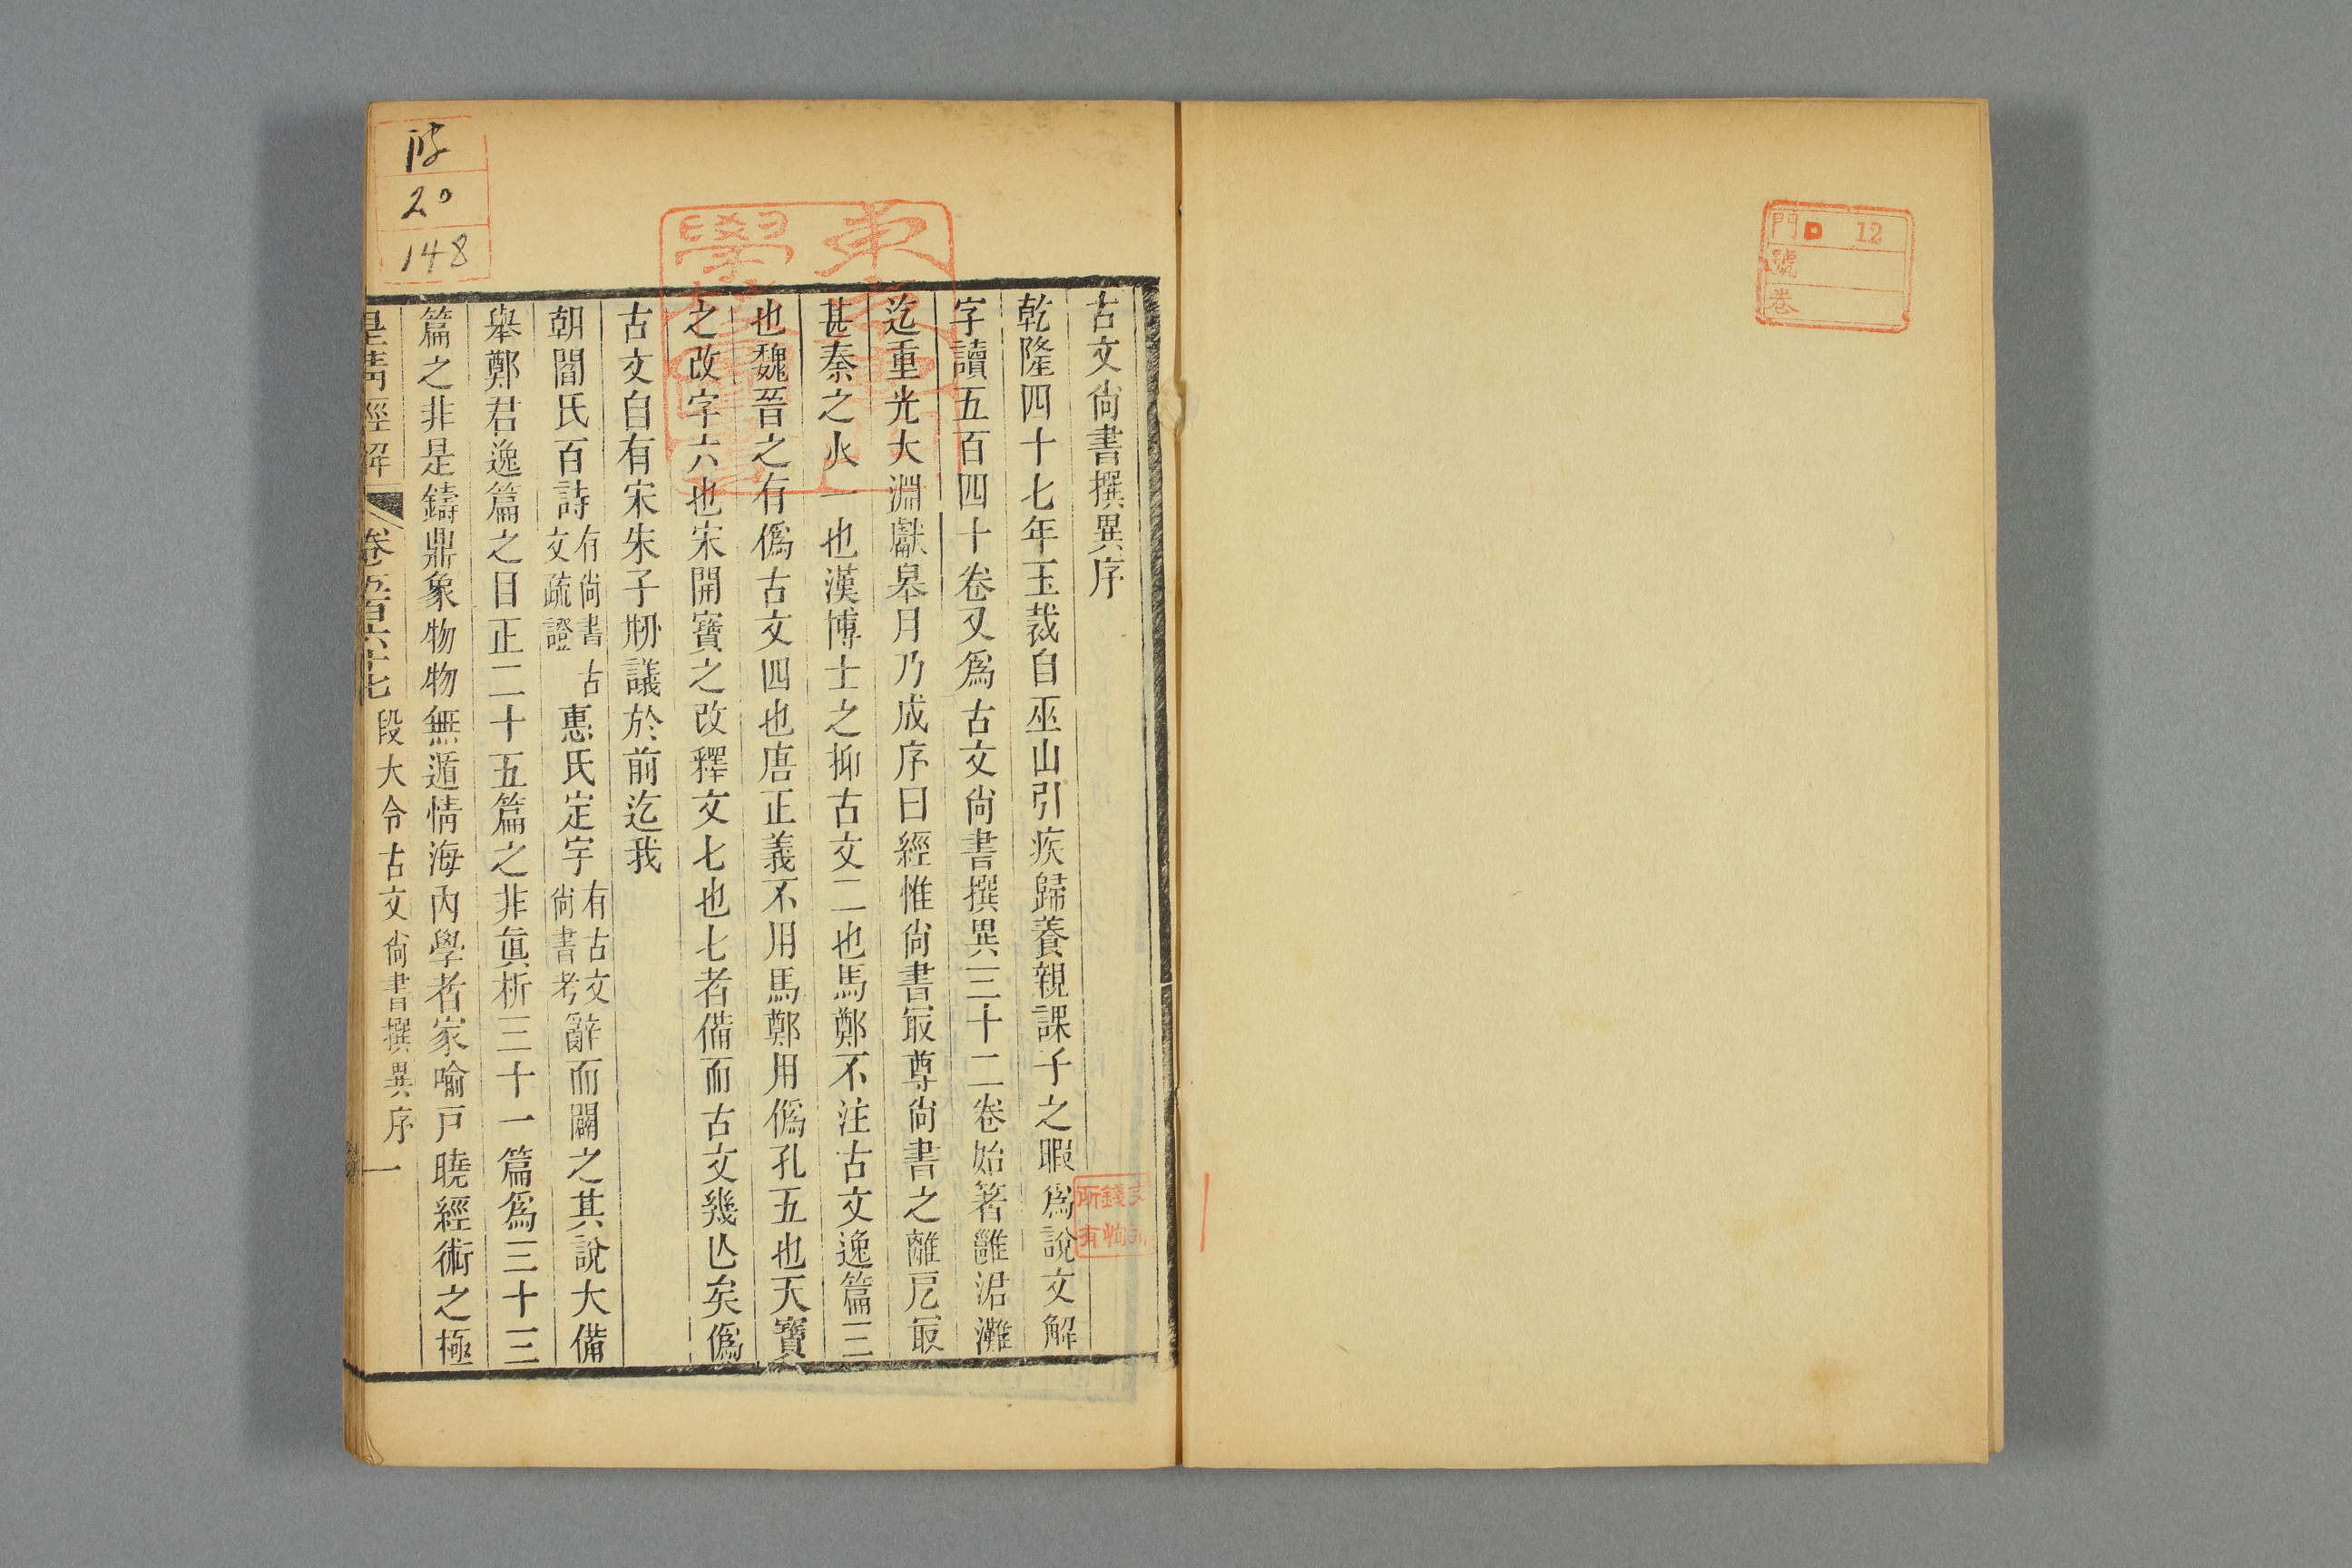 門 D 12
號
卷
古文尙書撰異序
乾隆四十七年玉裁自巫山引疾歸養親課子之暇爲說文解
字讀五百四十卷又爲古文尙書撰異三十二卷始箸雝涒灘
迄重光大淵獻皋月乃成序曰經惟尙書㝡尊尙書之離戹㝡
甚秦之火一也漢博士之抑古文二也馬鄭不注古文逸篇三
也魏晉之有僞古文四也唐正義不用馬鄭用僞孔五也天寶
之改字六也宋開寶之改釋文七也七者備而古文幾亾矣僞
古文自有宋朱子剏議於前迄我
朝閻氏百詩有尙書古文疏證惠氏定宇有古文尙書考辭而闢之其說大備
舉鄭君逸篇之目正二十五篇之非眞析三十一篇爲三十三
篇之非是鑄鼎象物物無遁情海內學者家喻戶曉經術之極
皇淸經解 卷五百六十七 段大令古文尙書撰異序 一
20
148
所有